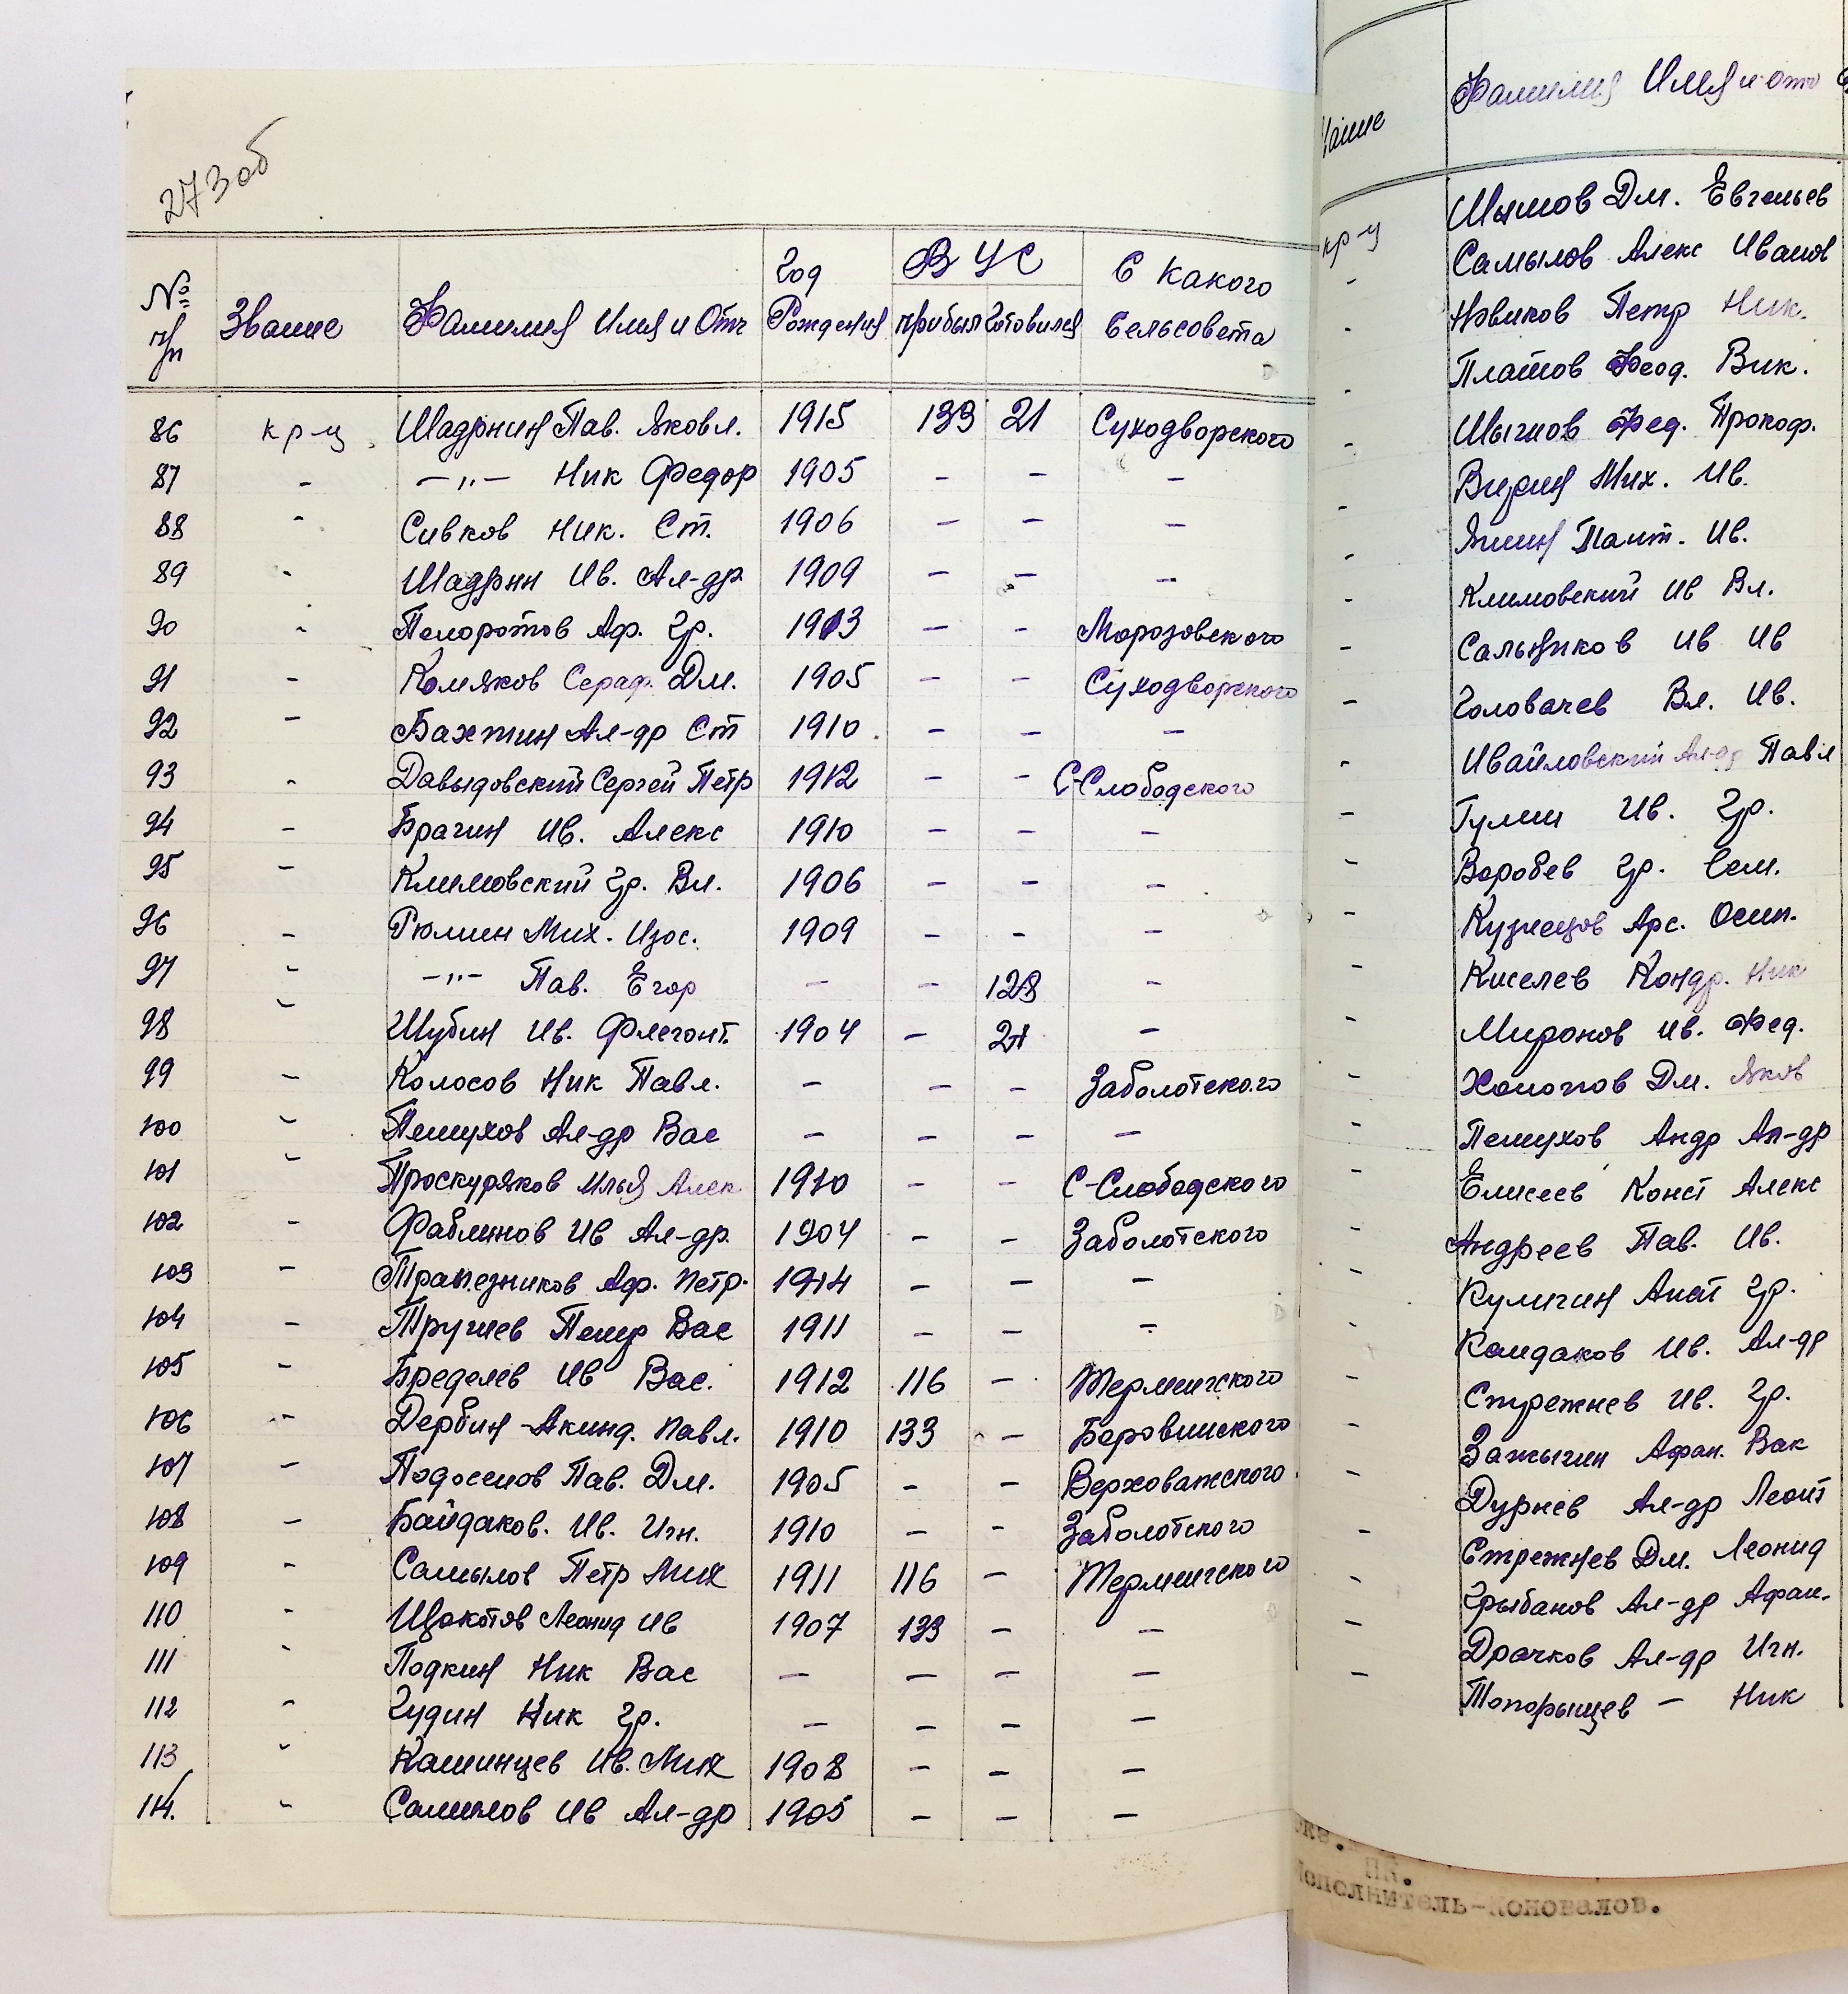 273об
№ п/п Звание Фамилия Имя и Отч Год Рождения ВУС прибыл готовился С какого сельсовета
86 кр-ц Шадрин Пав. Яковл. 1915 133 21 Суходворского
87 - —〃— Ник Федор 1905 - - -
88 - Сивков Ник. Ст. 1906 - - -
89 - Шадрин Ив. Ал-др 1909 - - -
90 - Пелоротов Аф. Гр. 1913 - - Морозовского
91 - Комяков Сераф. Дм. 1905 - - Суходворского
92 - Бахтин Ал-др Ст 1910 - - -
93 - Давыдовский Сергей Петр 1912 - - С-Слободского
94 - Брагин Ив. Алекс 1910 - - -
95 - Климовский Гр. Вл. 1906 - - -
96 - Рюмин Мих. Изос. 1909 - - -
97 - —〃— Пав. Егор - - 128 -
98 - Шубин Ив. Флегонт. 1904 - 21 -
99 - Колосов Ник Павл. - - - Заболотского
100 - Петухов Ал-др Вас - - - -
101 - Проскуряков Илья Алек 1910 - - С-Слободского
102 - Фаблинов Ив Ал-др. 1904 - - Заболотского
103 - Трапезников Аф. Петр. 1914 - - -
104 - Трушев Петр Вас 1911 - - -
105 - Бределев Ив Вас. 1912 116 - Терменгского
106 - Дербин Акинд. Павл. 1910 133 - Боровинского
107 - Подосенов Пав. Дм. 1905 - - Верховажского
108 - Байдаков. Ив. Игн. 1910 - - Заболотского
109 - Самылов Петр Мих 1911 116 - Терменгского
110 - Щекотов Леонид Ив 1907 133 - -
111 - Подкин Ник Вас - - - -
112 - Гудин Ник Гр. - - - -
113 - Кашинцев Ив. Мих 1908 - - -
114. - Самылов Ив Ал-др 1905 - - -
Фамилия Имя и отч
кр-ц Дм. Евгеньев
- Самылов Алекс Иванов
- Новиков Петр Ник.
- Платов Феод. Вик.
- Фед. Прокоф.
- Мих. Ив.
- Яшин Пант. Ив.
- Климовский Ив Вл.
- Сальников Ив Ив
- Головачев Вл. Ив.
- Ивайловский Ал-др Павл
- Гулин Ив. Гр.
- Воробев Гр. Сем.
- Кузнецов Арс. Осип.
- Киселев Кондр. Ник
- Миронов Ив. Фед.
- Дм. Яков
- Петухов Андр Ал-др
- Елисеев Конст Алекс
- Андреев Пав. Ив.
- Кулигин Анат Гр.
- Кайдаков Ив. Ал-др
- Стрежнев Ив. Гр.
- Зажигин Афан. Вак
- Дурнев Ал-др Леонт
- Стрежнев Дм. Леонид
- Грыбанов Ал-др Афан.
- Драчков Ал-др Игн.
- Топорыщев - Ник
экз.
ПК.
Исполнитель-Коновалов.